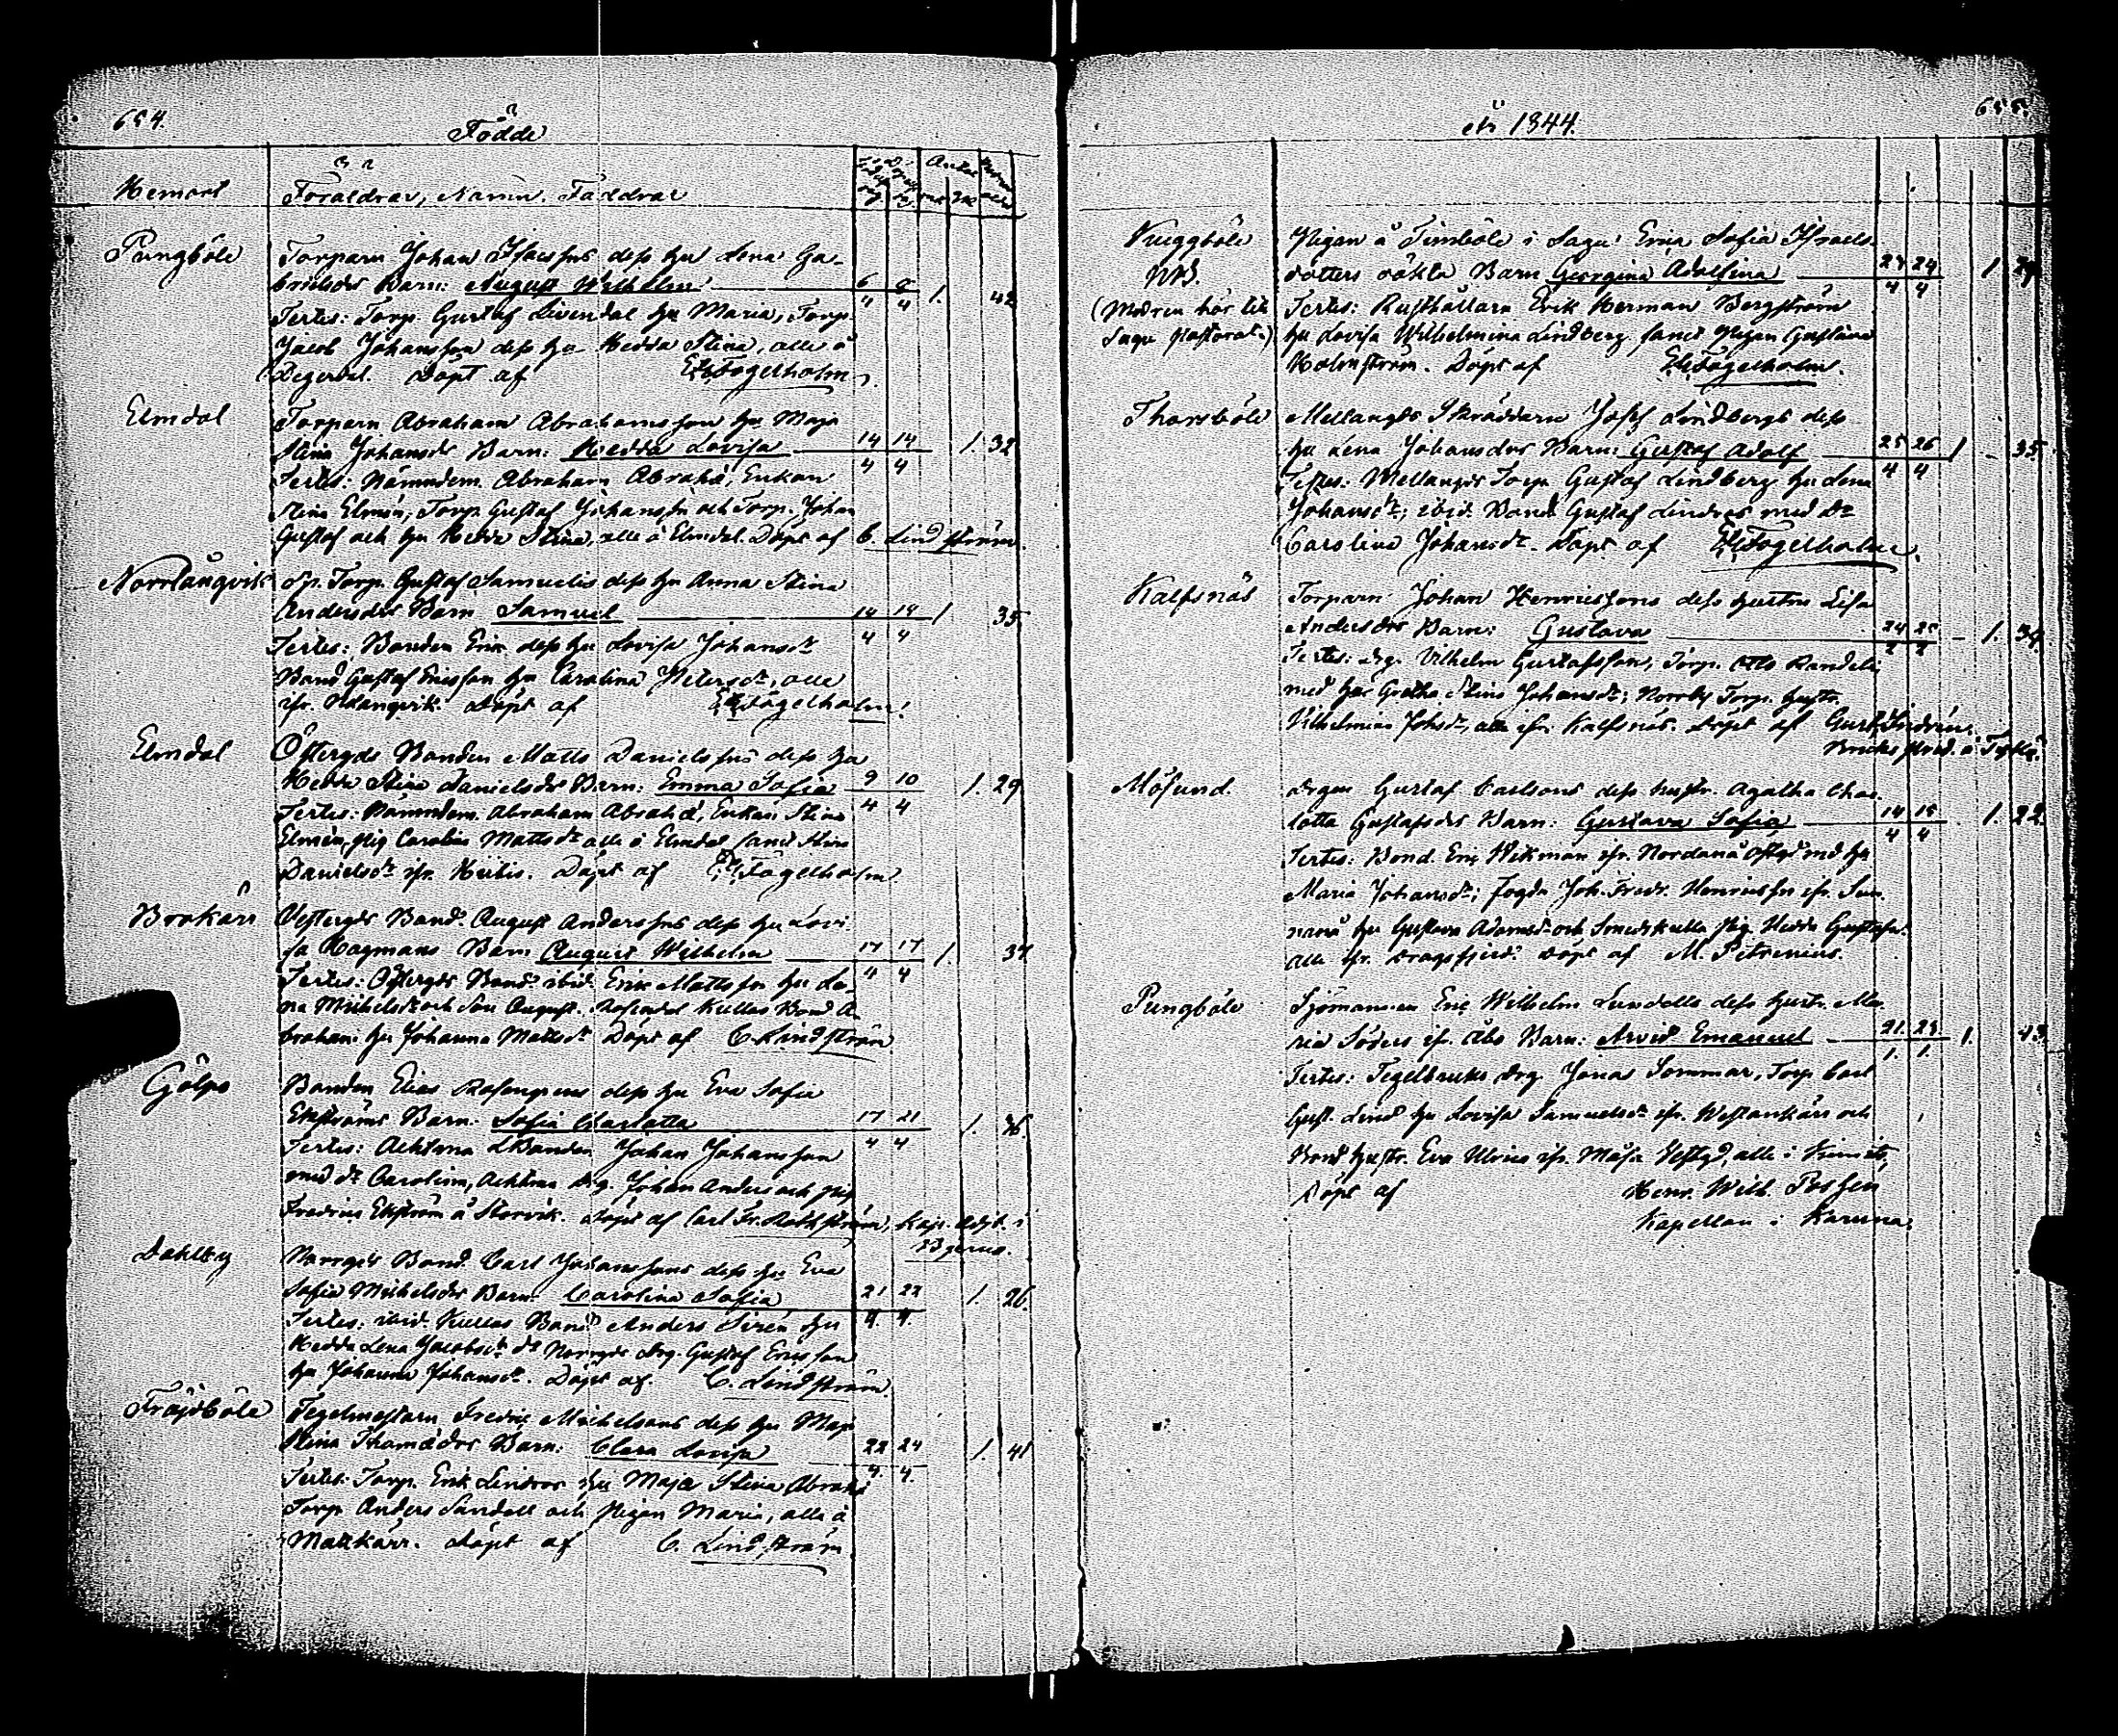 654.
Födde
Hemort
Föräldrar, Namn. Faddrar
Pungböle
Torparn Johan Isacssns dess hu Lena Ga-
brielsdrs Barn: August Wilhelm 6 8 1. 42
4 4
Testes: Torp. Gustaf Livendal hu Maria, Torp.
Jacob Johansson dess hu Hedda Stina, alla å
Degerdal. Döpt af Fogelholm.
Elmdal
Torparn Abraham Abrahamsson hu Maja
Stina Johansdrs Barn: Hedda Lovisa 14 14 1. 32
4 4
Testes: Nämndem. Abraham Abrah., Enkan
Stina Elmén, Torp. Gustaf Johanssn och Torp. Johan
Gustaf och hu Hedda Stina, alla å Elmdal. Döpt af C. Lindström.
Norrlångvik
Torp. Gustaf Samuels dess hu Anna Stina
Andersdrs Barn Samuel 14 14 1 35
4 4
Testes: Bonden Eric dess hu Lovisa Johansdr
Bond Gustaf Ericsson hu Carolina Petersdr, alla
ifr. Långvik. Döpt af Fogelholm.
Elmdal
Östergds Bonden Matts Danielssns dess hu
Hedda Stina Danielsdrs Barn: Emma Sofia 9 10 1. 29
4 4
Testes: Nämndem. Abraham Abrah., Enkan Stina
Elmén, Pig. Carolina Mattsdr alla å Elmdal samt Stina
Danielsdr ifr. Hitis. Döpt af Fogelholm.
Brokärr
Vestergds Bond. August Anderssns dess hu Lovi-
sa Hagmans Barn August Wilhelm 17 17 1. 37
4 4
Testes: Östergds Bond. ibid. Eric Mattssn hu Le-
na Michelsdr och Son August. Rosendal Kullas Bond A-
braham hu Johanna Mattsdr Döpt af C. Lindström
Gölpo
Bonden Elias Rosengrens dess hu Eva Sofia
Ekströms Barn: Sofia Charlotta 17 21 1. 36.
4 4
Testes: Bonden Johan Johansson
med Carolina, Drg. Johan Anders och Pig
Fredrica Ekström å Storvik. Döpt af Carl Fr. Rothström, Kap. Adjt. i
Bjerno.
Dahlby
Norrgds Bond. Carl Johanssons dess hu Eva
Sofia Michelsdrs Barn: Carolina Sofia 21 22 1. 26.
4. 4.
Testes: ibid. Kullas Bond Anders Sirén hu
Hedda Lena Jacobsdr Norrgds Drg. Gustaf Ericsson
hu Johanna Johansdr. Döpt af. C. Lindström.
Fröjdböle
Tegelmestarn Fredric Michelssons dess hu Maja
Stina Thomædrs Barn: Clara Lovisa 22 24 1. 41
4. 4.
Testes: Torp. Erik Lindros hu Maja Stina Abrahs
Torp Anders Sandell och Pigan Maria, alla å
Mattkärr. Döpt af C. Lindström.
655.
år 1844.
Vreggböle
Pigan å Timböle i Sagu Erica Sofia Israels-
NB.
dotters oäkta Barn Georgina Adolfina 23 24 1.
4 4
(Modren hör till
Testes: Rusthållarn Erik Herman Bergström
Sagu Pastorat.)
hu Lovisa Wilhelmina Lindberg samt Pigan Gustava
Holmström. Döpt af Fogelholm.
Thorsböle
Mellangds Skräddarn Josef Lindbergs dess
hu Lena Johansdrs Barn: Gustaf Adolf 25 26 1 - 35.
4 4
Testes: Mellangds Torp. Gustaf Lindberg hu Lena
Johansdr; ibid. Bond. Gustaf Lindros med
Carolina Johansdr. Döpt af Fogelholm.
Kalfsnäs
Torparn Johan Henricssons dess hustru Lisa
Andersdrs Barn: Gustava 24 25 - 1. 34.
Testes: Drg. Vilhelm Gustafsson, Torp. Otto Randelin
med hu Gretha Stina Johansdr; Norrby Torp. hustr.
Vilhelmina Johsdr, alla ifr. Kalfsnäs. Döpt af Gust. Lindrén.
Mösund.
Drgen Gustaf Carlssons dess hustr. Agatha Char-
lotta Gustafsdrs Barn: Gustava Sofia 14 15 1. 22
4 4
Testes: Bond. Eric Wikman ifr. Nordanå Östgd med hu
Maria Johansdr; Fogden Joh. Fredr. Henricssn ifr. Sun-
nanå hu Gustava Adamsdr och Smedskulla Pig. Hedda Gustafsdr.
alla ifr. Dragsfjerd. Döpt af M. Petrenius.
Pungböle
Sjömannen Eric Wilhelm Lundells dess hustr. Ma-
ria Söders ifr. Åbo Barn: Arvid Emanuel 21. 23. 1. 43.
1. 1.
Testes: Tegelbruks Drg. Jona Sommar, Torp. Carl
Gust. Lind hu Lovisa Samuelsdr ifr. Westankärr och
Bond hustr. Eva Ulrica ifr. Måsa Vestgd, alla i Kimito,
Döpt af Henr. Wilh. Possen
Kapellan i Karuna.